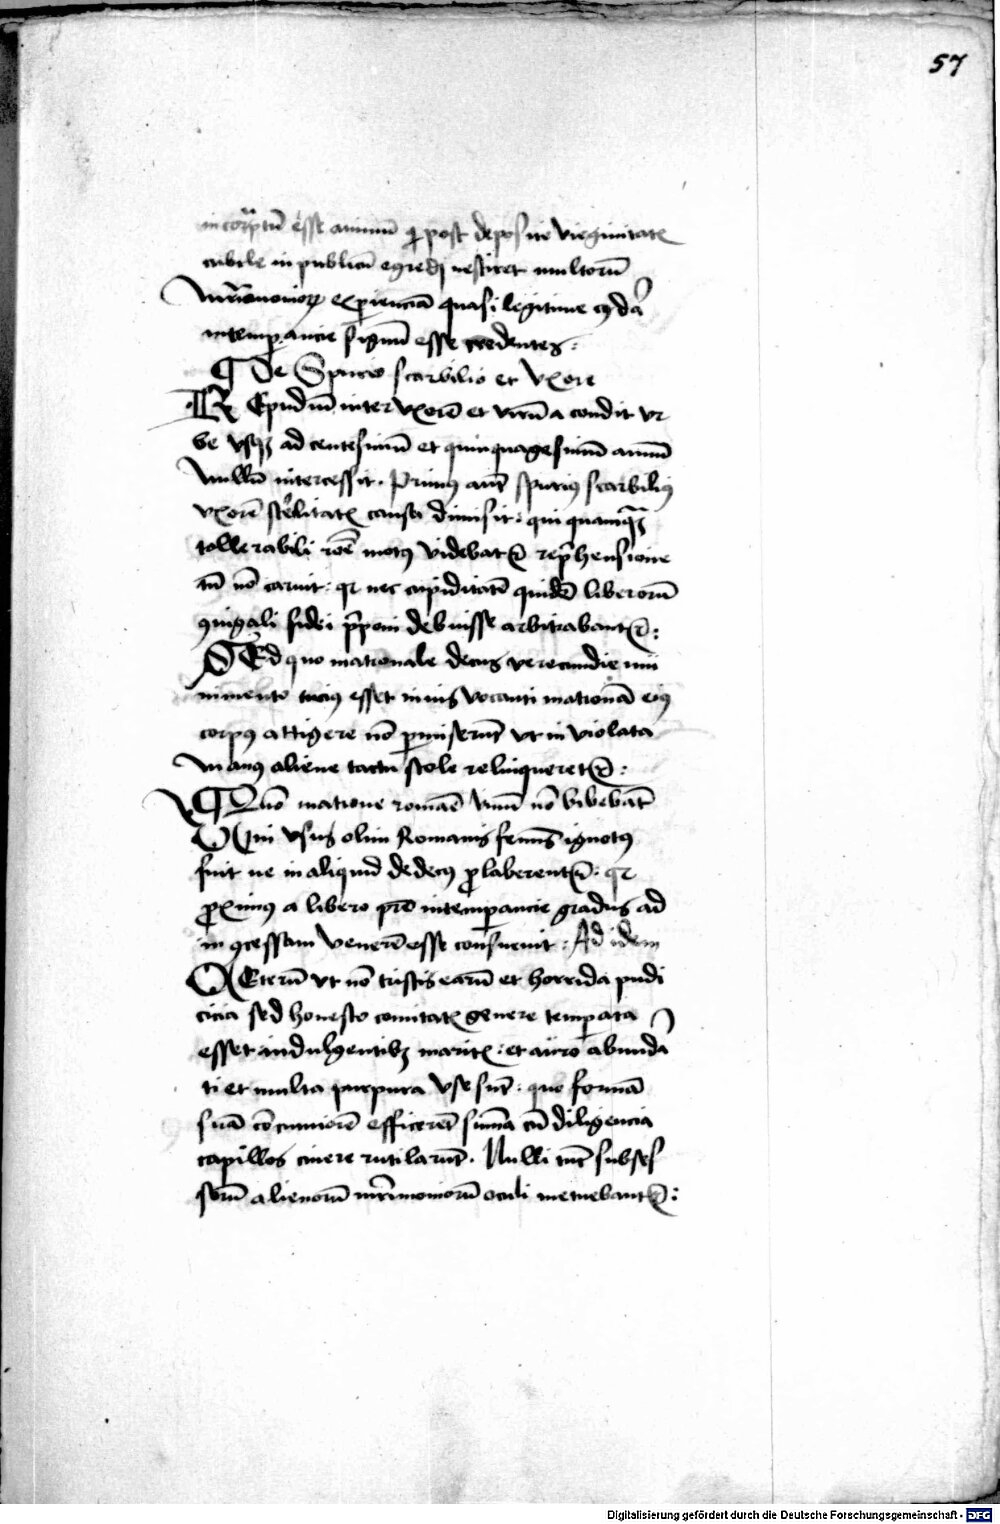 57
incorruptũ esse animũ qi post deposite virginitatꝭ
cubile in publicũ egredi nesciret multorũ
Mr̃imonioꝝ exp̱ienciã quasi legitime cuidã
intemp̱ancie signũ esse credentes :
¶ De Spurio scarbilio et Vxore
REpudiũ inter vxorẽ et virũ a condit vr
be vsqꝫ ad centesimũ et quinquagesimũ annũ
Nullũ intercessit . Primꝰ aũt spuriꝰ scarbiliꝰ
vxorẽ st'elitatꝭ causa dimisit : qui quamqᷓꝫ
tollerabili rõe motꝰ videbatᷣ rep̃hensione
tñ nõ caruit : qꝛ nec cupiditatẽ quidẽ liberorũ
ꝯiugali fidei p̃poni debuisse arbitrabantᷣ :
SEd quo matronale decus verecundie mu
nimento tuciꝰ esset in ius vocanti matronã eiꝰ
corpꝰ attigere nõ p̱miserũt vt inviolata
Manꝰ aliene tactu stole relinqueretᷣ :
¶ Quõ matrone romãe vinũ nõ bibebãt
VIni vsus olim Romanis femĩs ignotꝰ
fuit ne in aliquid dedecꝰ ꝓlaberentᷣ : qꝛ
ꝓximꝰ a libero pr̃e intemp̱ancie gradus ad
in ꝯcessam Venerẽ esse consueuit : Ad idem
CEterũ vt nõ tristis earũ et horrida pudi
cicia sed honesto comitatꝭ genere temp̱ata
esset indulgentibꝫ maritꝭ : et auro abundã
ti et multa purpura vse sũt : quo formã
suã cõcinniorẽ efficerẽt sum̃a cũ diligencia
capillos cinere rutilarũt . Nulli tũc subses
sorũ alienorũ mr̃imoniorũ oculi metuebantᷣ :
Digitalisierung gefördert durch die Deutsche Forschungsgemeinschaft - DFG